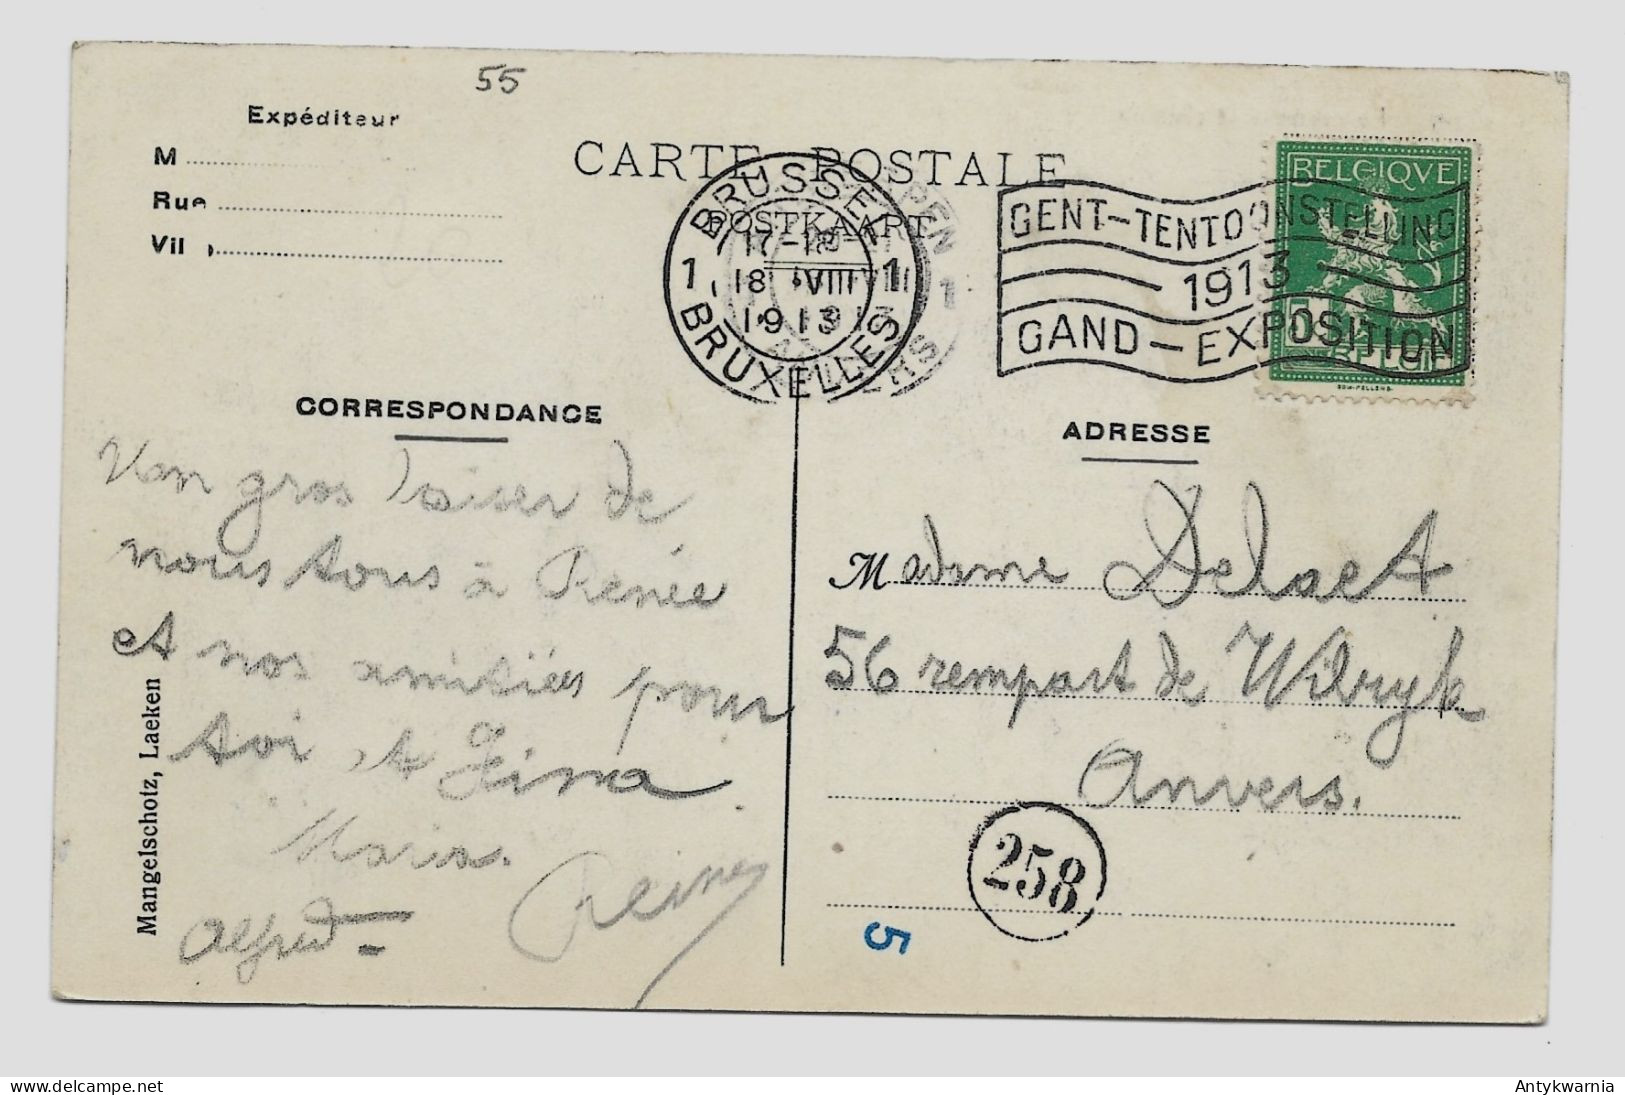 55
Expéditeur
M
Rue
Vil
CARTE POSTALE
POSTKAART
BRUSSEL
1 1
17-18
18 VIII
1913
BRUXELLES
PEN
1
ERS
GENT-TENTOONSTELLING
1913
GAND-EXPOSITION
BELGIQVE
5
BELGIE
CORRESPONDANCE
gros baiser de
nous tous à Renée
et nos amitiés pour
toi et
Maria.
Alfred
ADRESSE
Madame Delaet
56 rempart de Wilryk
Anvers.
258
5
Mangelschotz, Laeken
delcampe.net
Antykwarnia